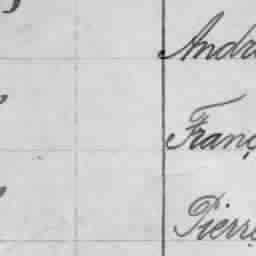 Andr
Franç
Pierr